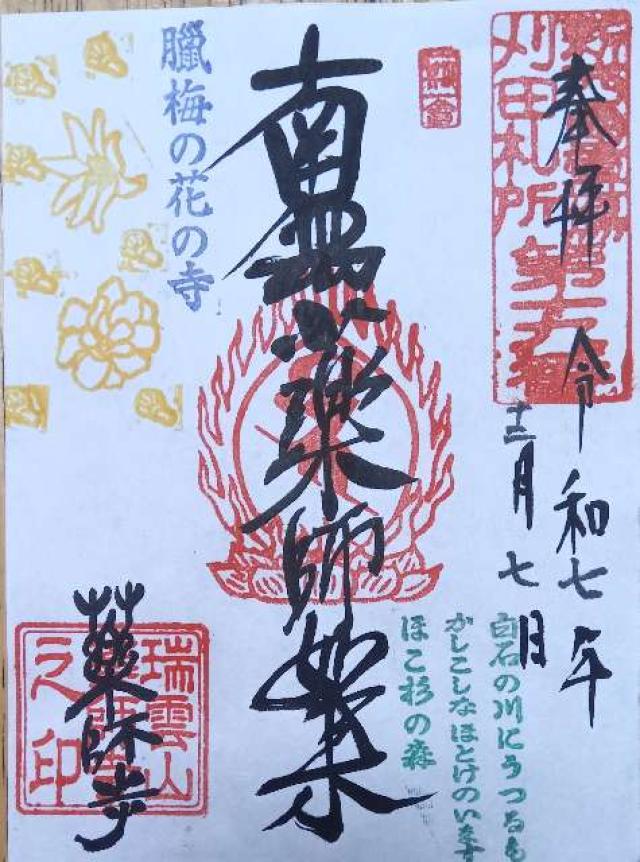 奉拝
令和七年
十二月七日
刈田札所
南無薬師如来
白石の川にうつるも
かしこしなほとけのいます
ほこ杉の森
臘梅の花の寺
薬師寺
瑞雲山
之印